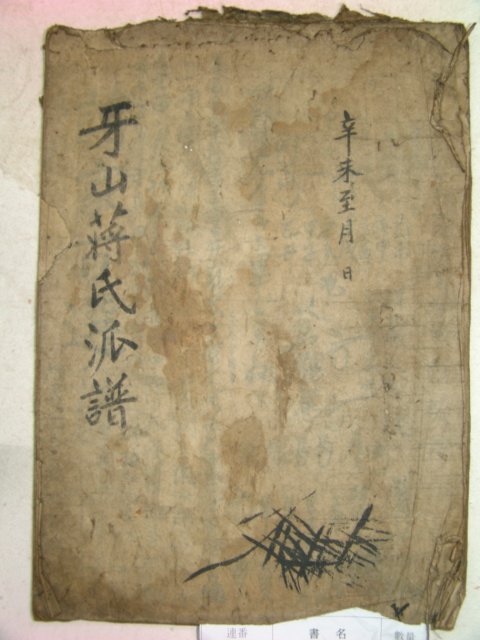 辛未至月 日
牙山蔣氏派譜
連番
書名
數量